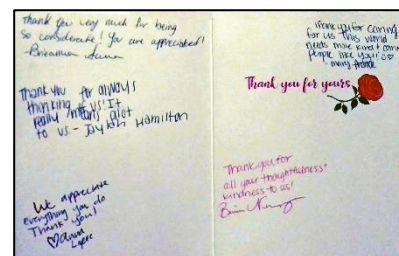 Thank you very much for being
so considerate! You are appreciated!
Thank you for always
thinking of us! It
really means alot
to us - Hamilton
We appreciate
everything you do
Thank you!
Thank you for caring
for us This world
needs more kind & caring
people like you!
Thank you for yours
Thank you for
all your thoughtfulness &
kindness to us!